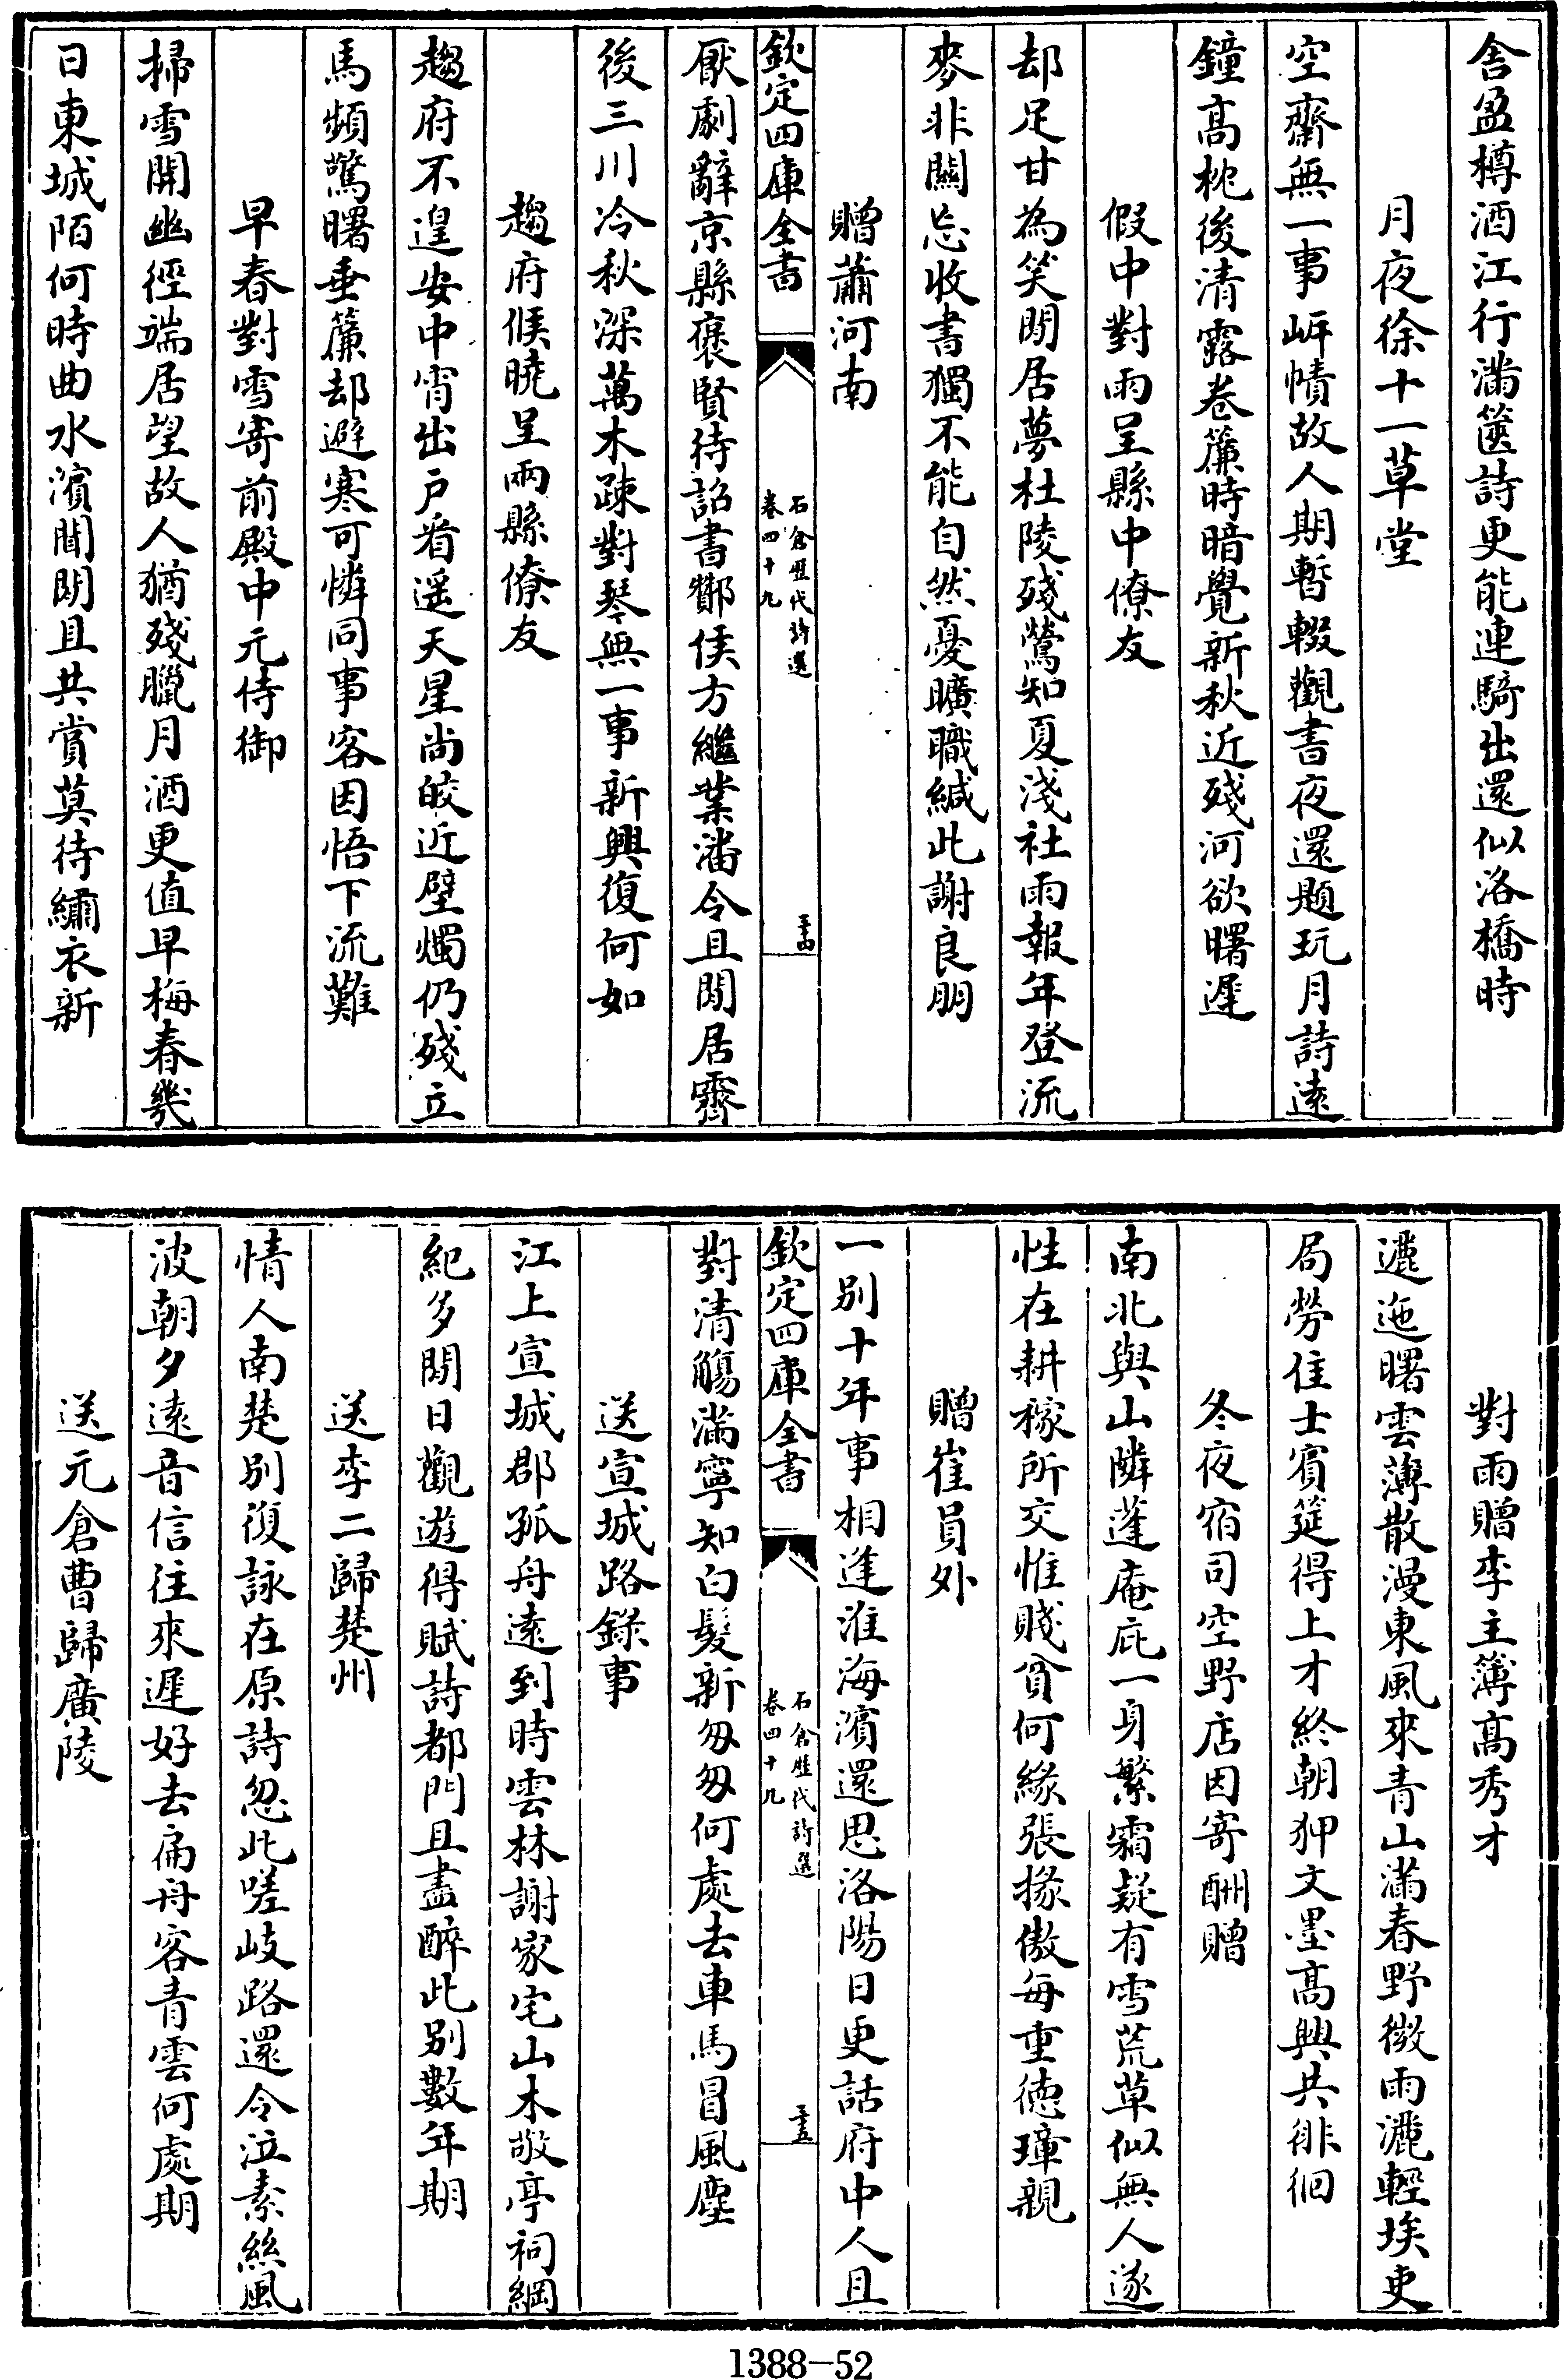 舎盈樽酒江行滿篋詩更能連騎出還似洛橋時
月夜徐十一草堂
空齋無一事岸幘故人期暫輟觀書夜還題玩月詩逺
鐘髙枕後清露卷簾時暗覺新秋近殘河欲曙遲
假中對雨呈縣中僚友
却足甘為笑閒居夢杜陵殘鶯知夏淺社雨報年登流
麥非闗忘收書獨不能自然憂曠職緘此謝良朋
贈蕭河南
欽定四庫全書
石倉歴代詩選
卷四十九
三十四
厭劇辭京縣褒賢待詔書酇侯方繼業潘令且閒居霽
後三川冷秋深萬木疎對琴無一事新興復何如
趨府候曉呈兩縣僚友
趨府不遑安中宵出户看遥天星尚皎近壁燭仍殘立
馬頻驚曙垂簾却避寒可憐同事客因悟下流難
早春對雪寄前殿中元侍御
掃雪開幽徑端居望故人猶殘臘月酒更值早梅春幾
日東城陌何時曲水濱聞閒且共賞莫待繡衣新
對雨贈李主簿髙秀才
邐迤曙雲薄散漫東風來青山滿春野微雨灑輕埃吏
局勞佳士賓筵得上才終朝狎文墨髙興共徘徊
冬夜宿司空野店因寄酬贈
南北與山隣蓬庵庇一身繁霜疑有雪荒草似無人遂
性在耕稼所交惟賤貧何緣張掾傲每重徳璋親
贈崔員外
一別十年事相逢淮海濱還思洛陽日更話府中人且
欽定四庫全書
石倉歴代詩選
卷四十九
三十五
對清觴滿寧知白髪新匆匆何處去車馬冒風塵
送宣城路錄事
江上宣城郡孤舟逺到時雲林謝家宅山木敬亭祠綱
紀多閒日觀遊得賦詩都門且盡醉此別數年期
送李二歸楚州
情人南楚別復詠在原詩忽此嗟岐路還令泣素絲風
波朝夕逺音信往來遲好去扁舟客青雲何處期
送元倉曹歸廣陵
1388-52